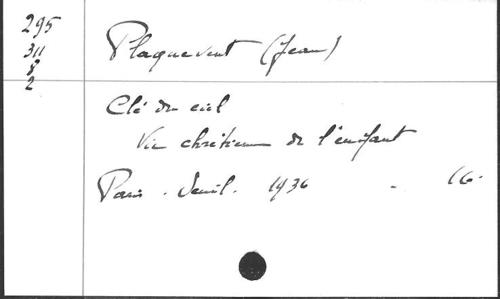 295
311
8
2
Plaquevent (Jean)
Clé du ciel
Vie chrétienne de l'enfant
Paris. Seuil. 1936 - 16-